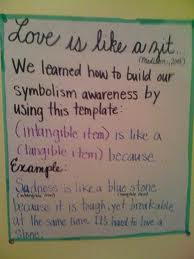 Love is like a zit...
(Madison, 2005)
We learned how to build our
symbolism awareness by
using this template:
(intangible item) is like a
(tangible item) because
Example:
Sadness is like a blue stone
(intangible item) (tangible item)
because it is tough, yet breakable
at the same time. It's hard to love a
stone.